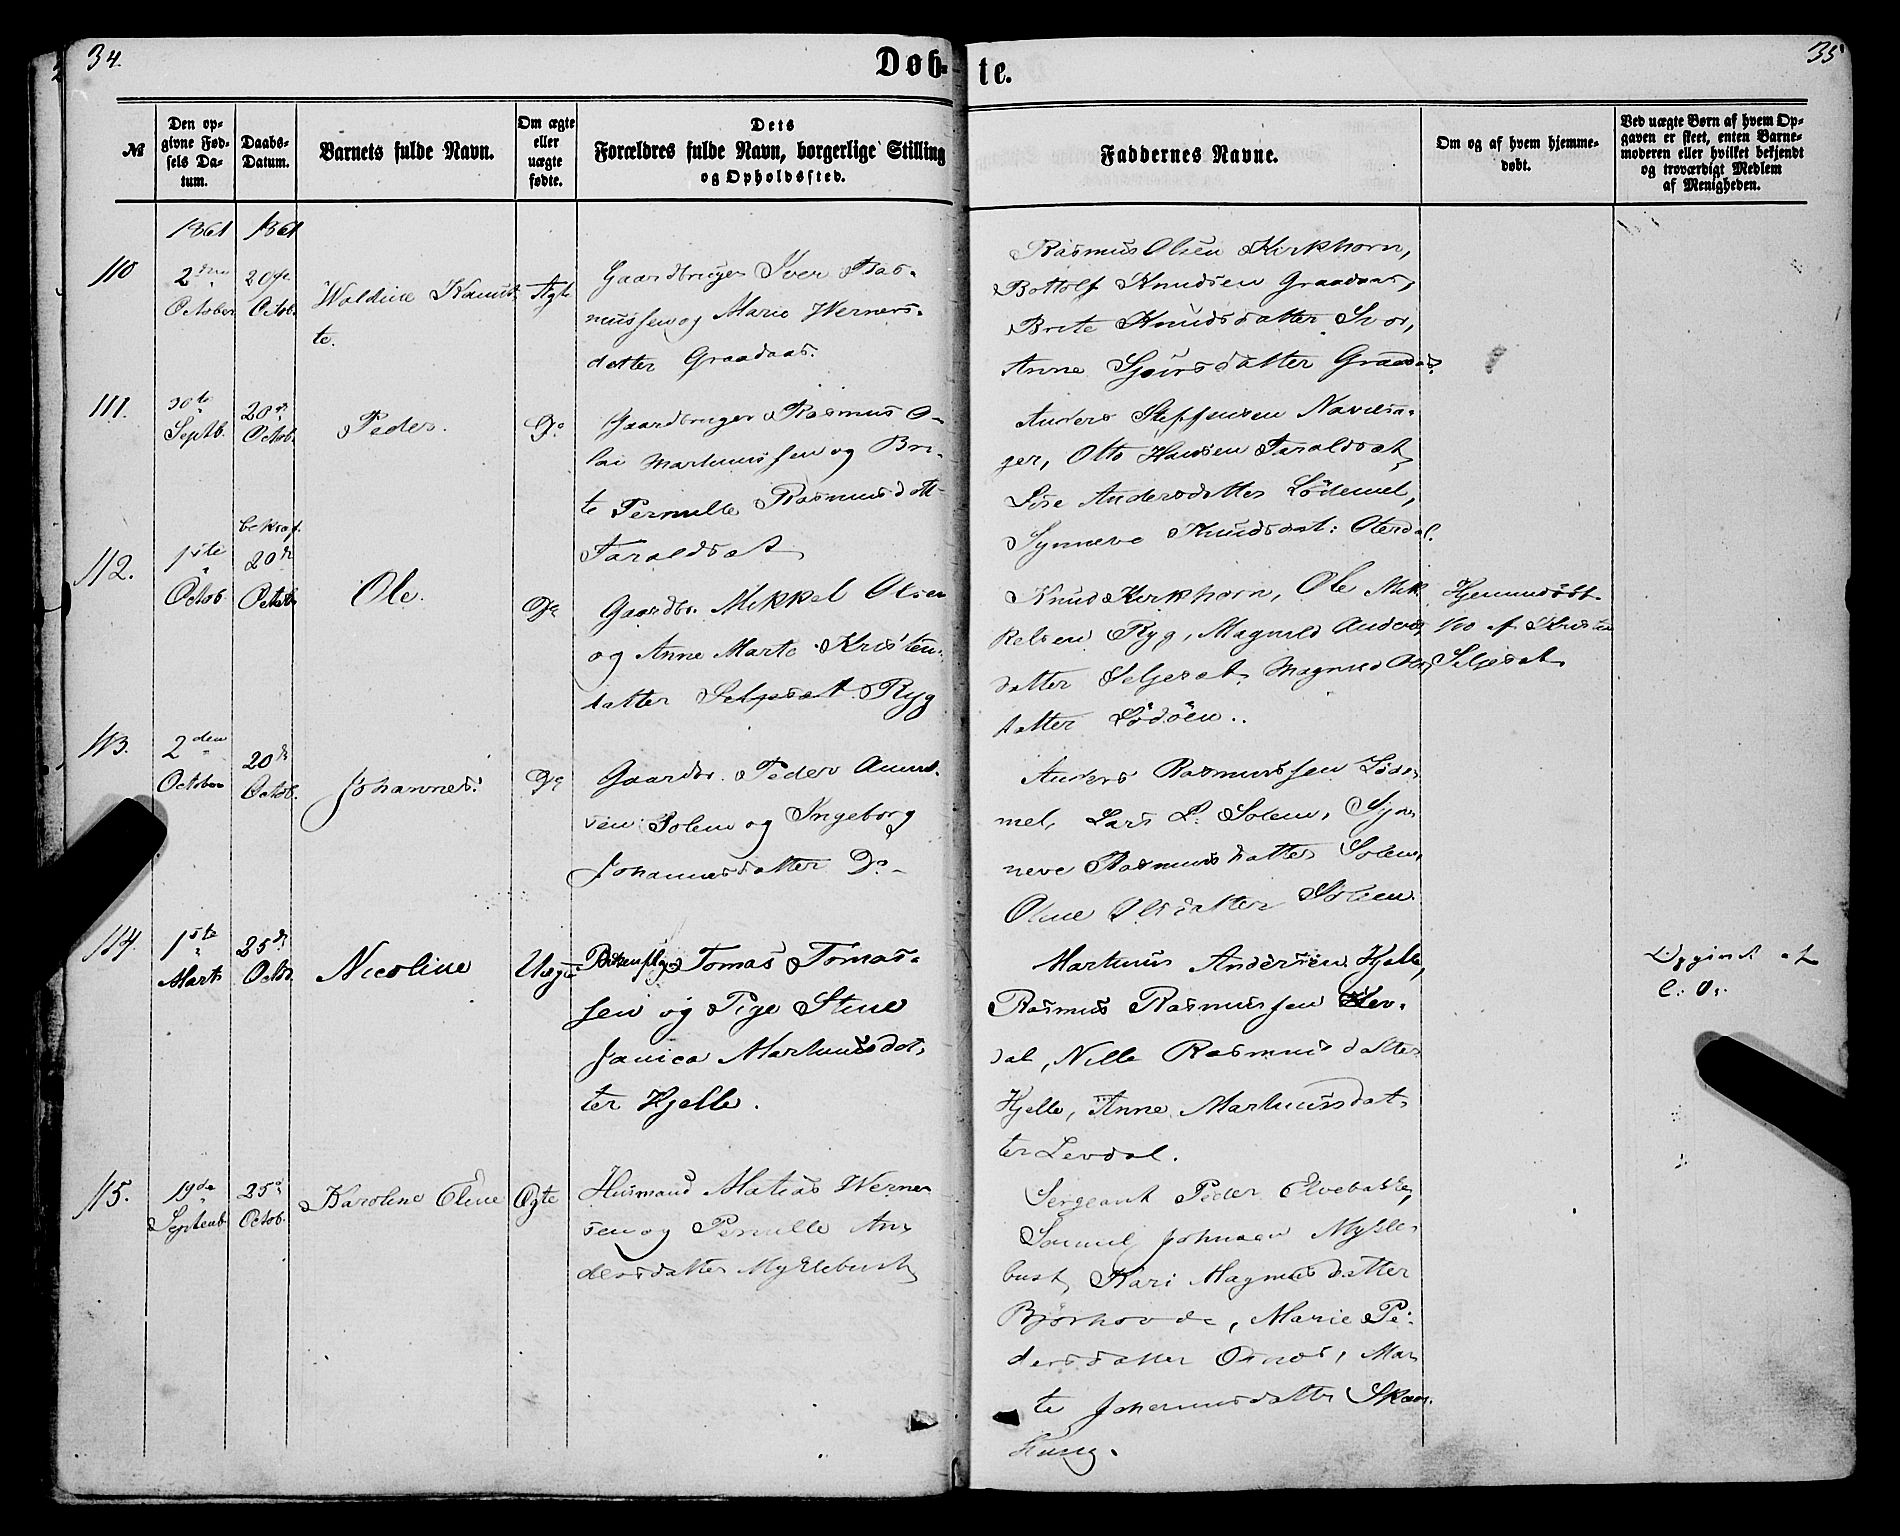 34.
Døb-
te.
35
№
Den opgivne Fødsels Datum.
Daabs-Datum.
Barnets fulde Navn.
Om ægte eller uægte fødte.
Dets Forældres fulde Navn, borgerlige Stilling og Opholdssted.
Faddernes Navne.
Om og af hvem hjemmedøbt.
Ved uægte Børn af hvem Opgaven er skeet, enten Barnemoderen eller hvilket bekjendt og troværdigt Medlem af Menigheden.
1861 1861
110
2den October
20de Octob.
Waldine
te.
Ægte
Gaardbruger Iver Ras-
mussen og Marie Werners-
datter Graadaas.
Rasmus Olsen Kirkhorn,
Bottolf Knudsen Graadaas,
Brite Knudsdatter
Anne Sjursdatter Graadas.
111.
30te Septb.
20de Octob.
Peder.
Do
Gaardbruger Rasmus O-
lai Martinussen og Bri-
te Pernille Rasmusdatt-
Taraldsat
Anders Steffensen Navelsa-
ger, Otto Hansen Taraldsat,
Lise Andersdatter Lødemel,
Synneve Knudsdat: Oterdal.
112.
1ste Octob.
bekræf. 20de Octob.
Ole.
Do
Gaardbr. Mikkel Olsen
og Anne Marte Kristen-
datter Seljesat Ryg
Knud Kirkhorn, Ole Mik
kelsen Ryg, Magnild Anders
datter Seljesat, Magnild Ols
datter Lødøen..
Hjemmedøbt
af
Seljesat
113.
2den October
20de Octob.
Johannes.
Do
Gaardbr. Peder Amund-
sen Solem og Ingeborg
Johannesdatter Do -
Anders Rasmussen Løde-
mel, Lars L. Solem, Syn-
neve Rasmusdatter Solem,
Oline Olsdatter Solem.
114.
1ste Marts
25de Octbr
Nicoline
Uægte
Tomas Tomas-
sen og Pige Stine
Janica Martinusdat-
ter Hjelle.
Martinus Andersen Hjelle,
Rasmus Rasmussen Lev-
dal, Nille Rasmusdatter
Hjelle, Anne Martinusdat-
ter Levdal.
Opgivet af
115.
19de Septemb
25de Octob.
Karoline Eline
Ægte
Husmand Matias Werner
sen og Pernille An-
dersdatter Myklebust
Sergeant Peder Elvebakke,
Samuel Johnsen Mykle-
bust, Kari Magnusdatter
Bjørhovde, Marie Pe-
dersdatter Osnes, Mar-
te Johannesdatter